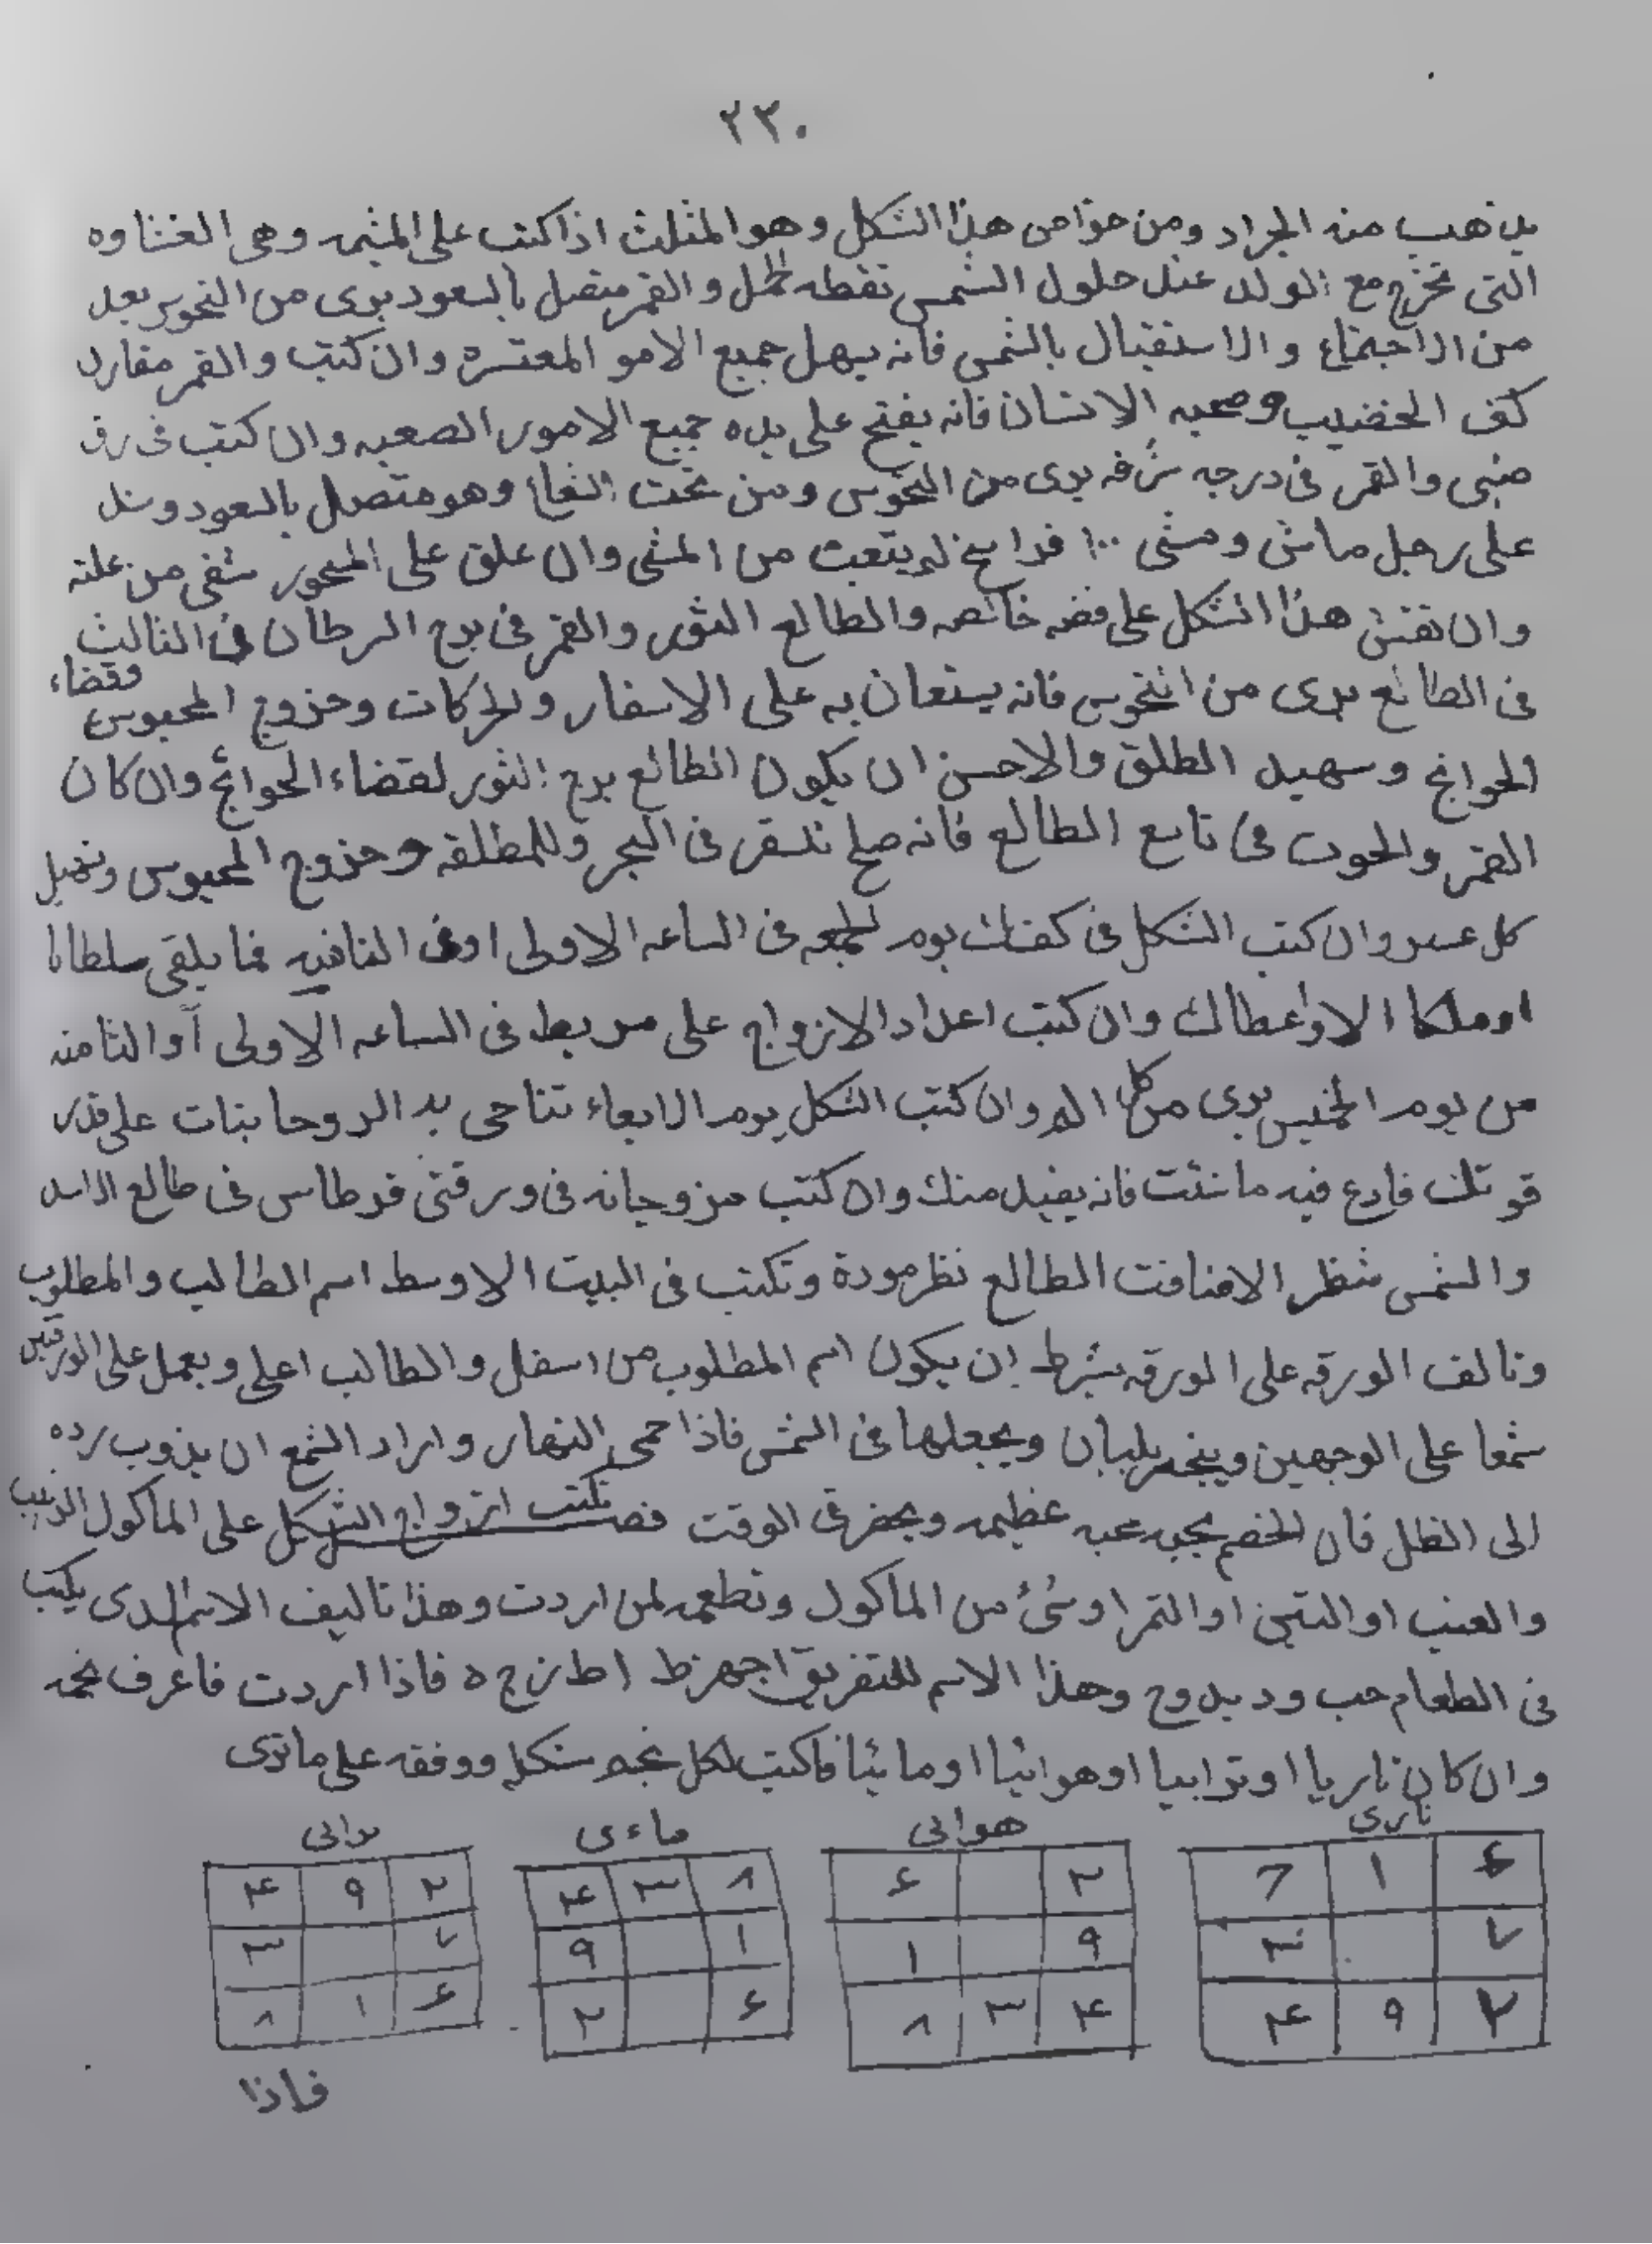 ٢٣٠
يذهب منه الجراد ومن خواص هذا الشكل وهو المثلث اذا كتب على المشيمه وهى الغشاوه
التى تخرج مع الولد عند حلول الشمس نقطه الحمل والقمر متصل بالسعود برى من النحوس بعد
من الاجتماع والاستقبال بالشمس فانه يسهل جميع الامو المعتسره وان كتب والقمر مقارن
كف الخضيب وصحبه الانسان فانه يفتح على يده جميع الامور الصعبه وان كتب فى رق
ضبى والقمر فى درجه شرفه برى من النحوس ومن تحت الشعاع وهو متصل بالسعود وشد
على رجل ماش ومشى ١٠٠ فراسخ لم يتعب من المشى وان علق على المسحور شفى من علته
وان نقش هذا الشكل على فضه خالصه والطالع الثور والقمر فى برج السرطان فى الثالث
فى الطالع برى من النحوس فانه يستعان به على الاسفار والحركات وخروج المحبوس وقضاء
الحوائج وسهيل الطلق والاحسن ان يكون الطالع برج الثور لقضاء الحوائج وان كان
القمر والحوت فى تاسع الطالع فانه صلح لسفر فى البحر وللمطلقه وخروج المحبوس وتسهيل
كل عسر وان كتب الشكل فى كفك يوم الجمعه فى الساعه الاولى اوفى الثانيه فما يلقى سلطانا
او ملكا الا وأعطاك وان كتب اعداد الازواج على مربط فى الساعه الاولى أو الثامنه
من يوم الخميس برى من كل الم وان كتب الشكل يوم الاربعاء تناجى به الروحانيات على قدر
قوتك فادع فيه ما شئت فانه يفيد منك وان كتب مزوجاته فى ورقتى قرطاس فى طالع الاسد
والشمس تنظر الطالع نظر مودة وتكتب فى البيت الاوسط اسم الطالب والمطلوب
وتالف الورقه على الورقه بشرط ان يكون اسم المطلوب من اسفل والطالب اعلى ويعمل على الورقتين
شمعا على الوجهين ويبخر بلبان ويجعلها فى الشمس فاذا حمى النهار واراد الشمع ان يذوب رده
الى الظل فان الخصم يحبه محبه عظيمه ويحضر فى الوقت فصـ تكتب ازواج الشكل على الماكول الزبيب
والعنب او التين او التمر او شئ من الماكول وتطعمه لمن اردت وهذا تاليف الاسم الدى يكتب
فى الطعام حب ود بدوح وهذا الاسم للتفريق اجهزط اط زج ه فاذا اردت فاعرف نجمه
وان كان ناريا او ترابيا او هوائيا او مائيا فاكتب لكل نجم شكله ووفقه على ما ترى
نارى هوائى ماءى
٦ ١
٧ ٣
٢ ٩ ٤
٢ ٦
٩ ١
٤ ٣ ٨
٨ ٣ ٤
١ ٩
٦ ٢
٢ ٩ ٤
٧ ٣
٦ ١ ٨
فاذا